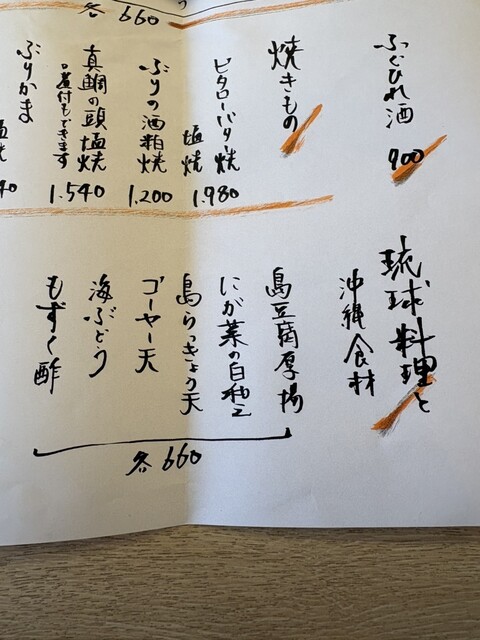 各 660
ふぐひれ酒
900
焼きもの
ビタローバタ焼
塩焼
1.980
ぶりの酒粕焼
1.200
真鯛の頭塩焼
煮付もできます
1.540
ぶりかま
塩焼
琉球料理と
沖縄食材
島豆腐厚揚
にが菜の白和え
島らっきょう天
ゴーヤー天
海ぶどう
もずく酢
各 660